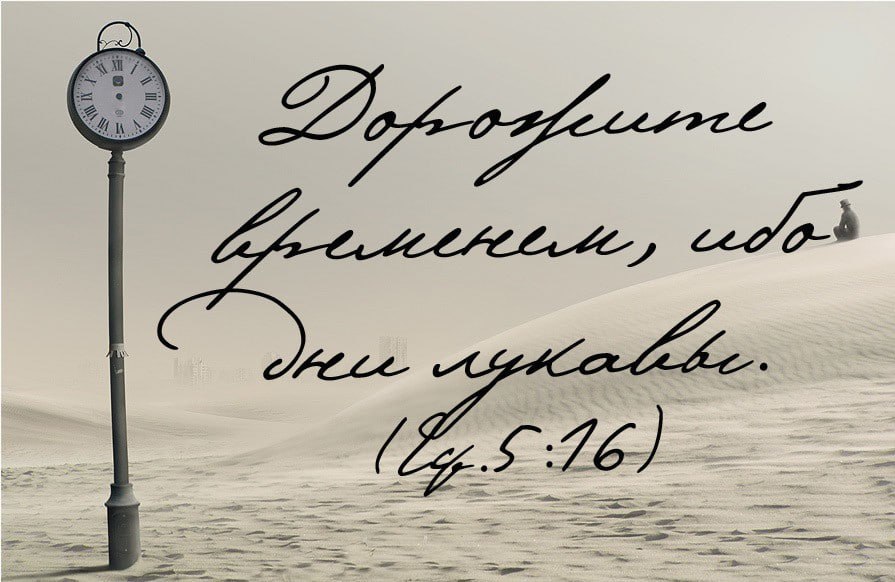 Дорожите
временем, ибо
дни лукавы.
(Еф.5:16)